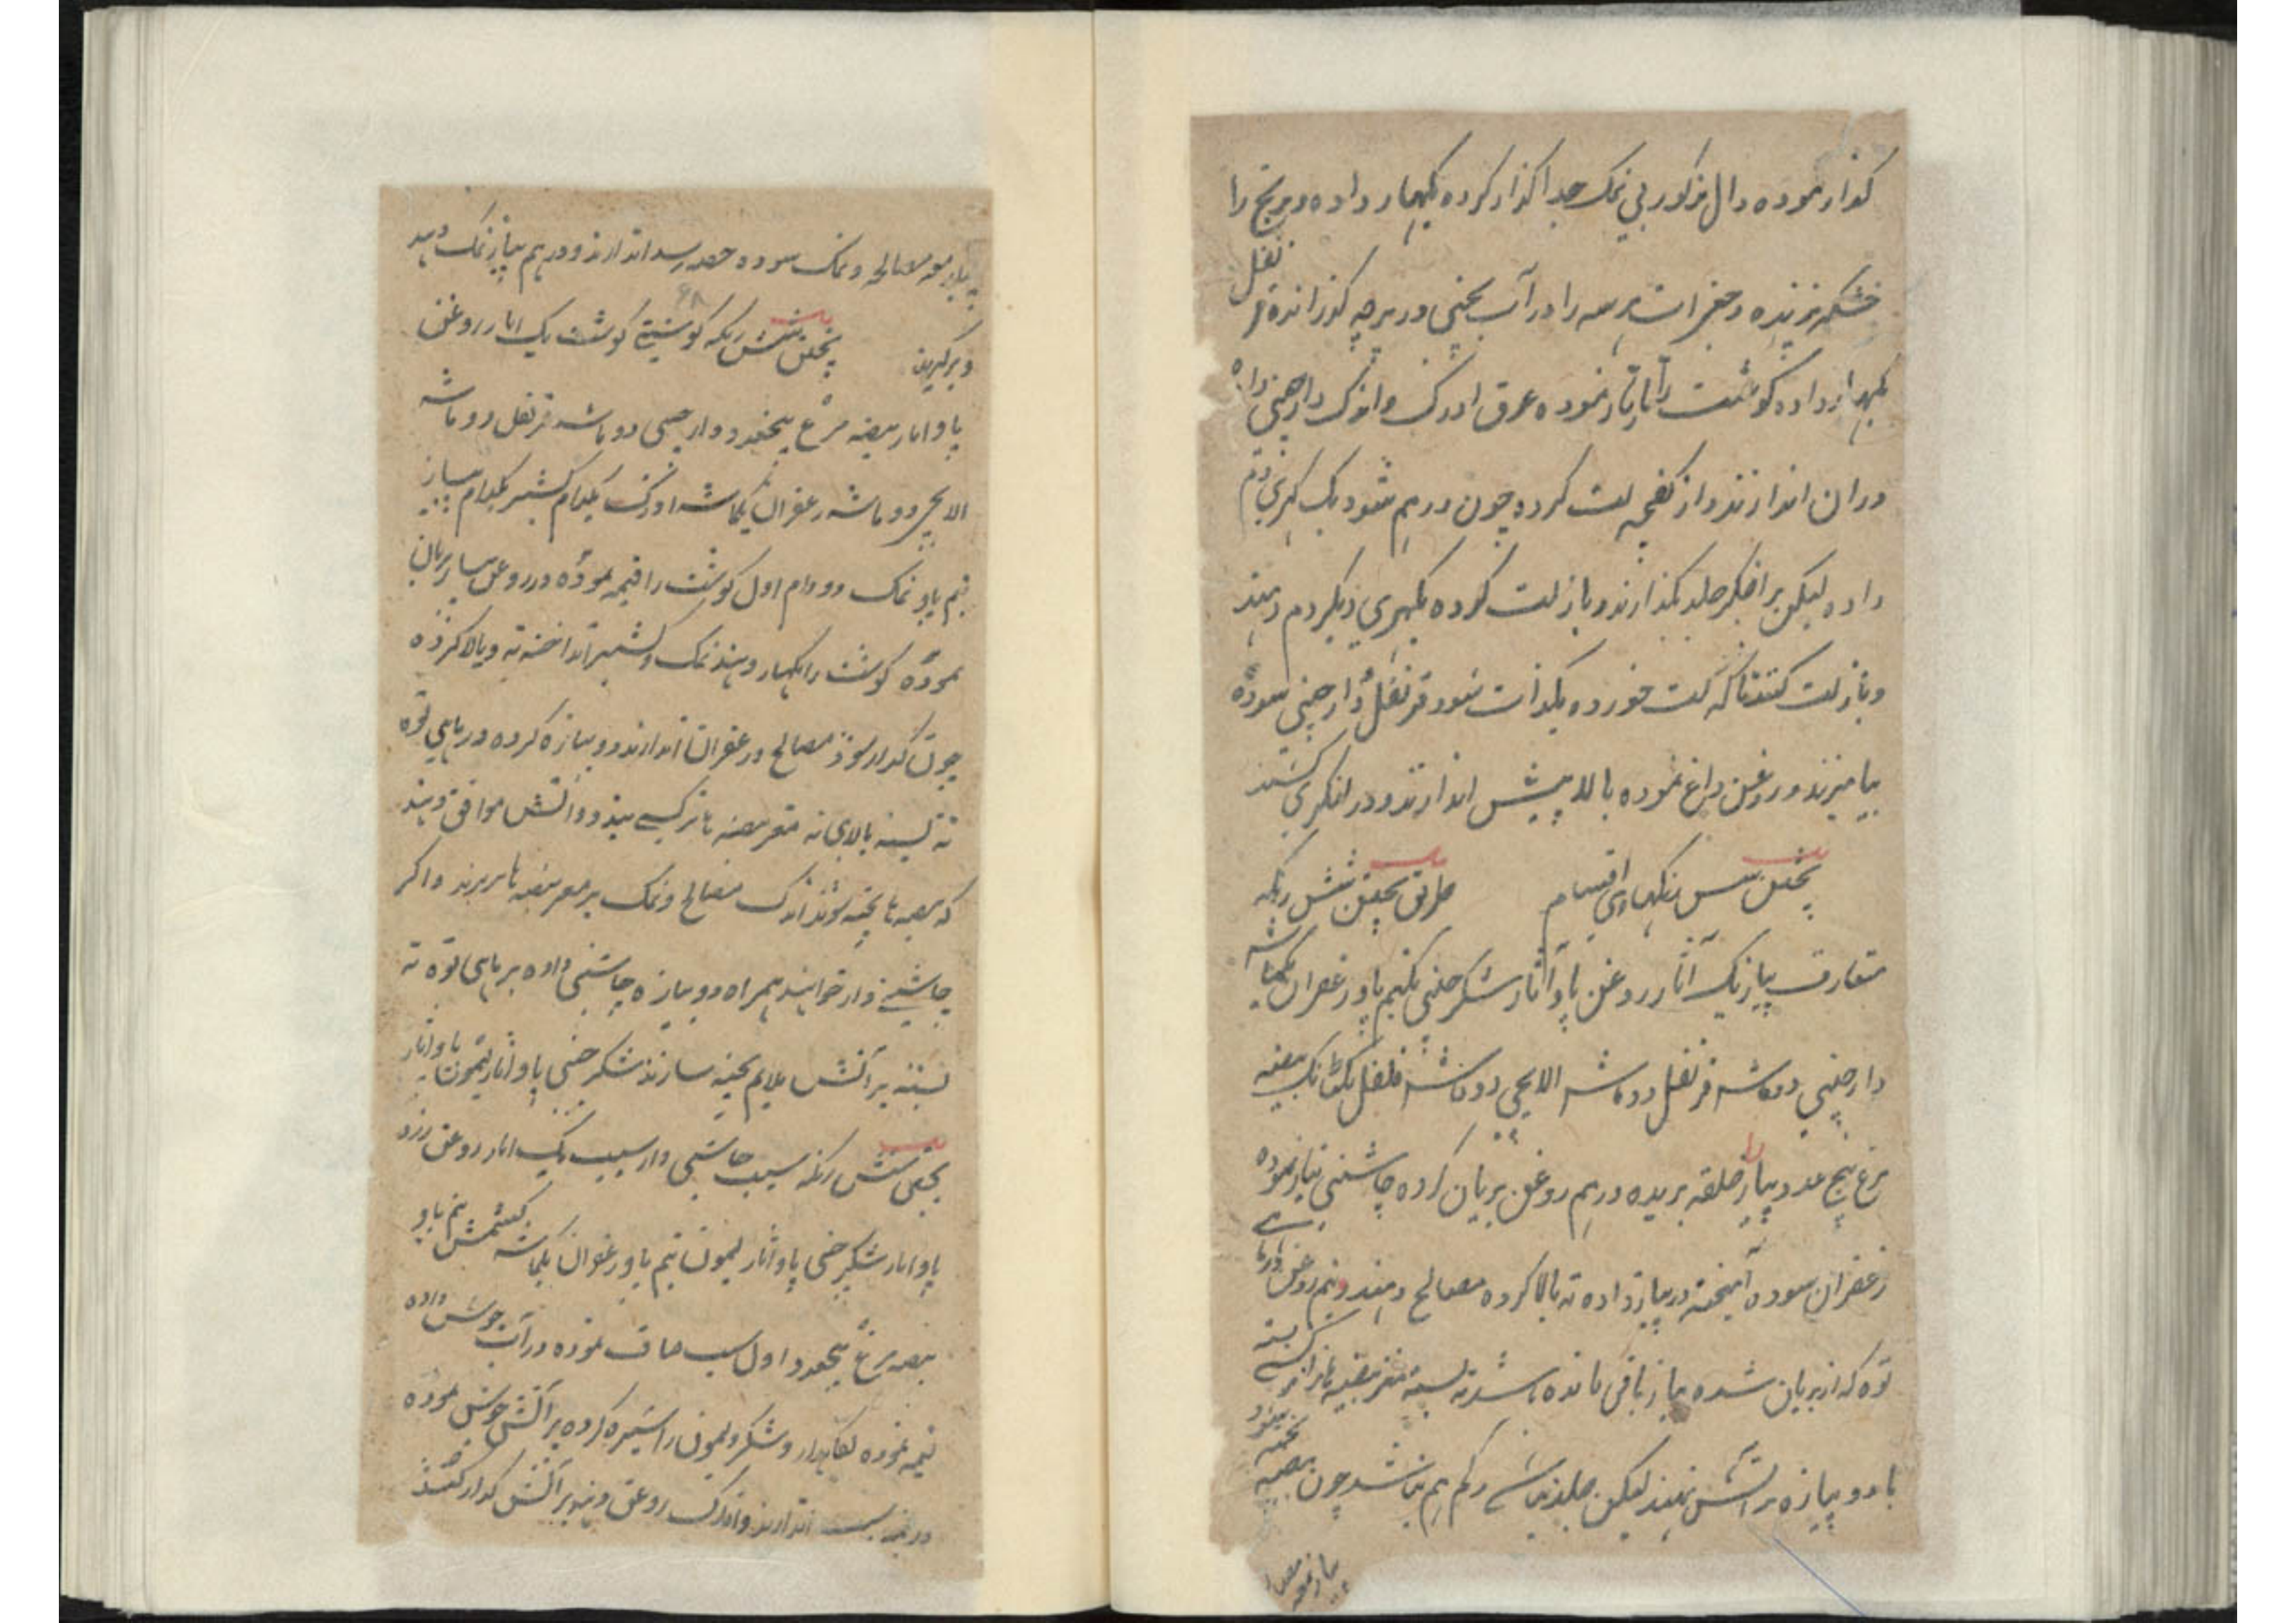 گذار نموده دال مذکور بی نمک جدا گذار کرده بگهار داده و برنج را
خشکه پزند و جغرات هر سه را در آب یخنی در پارچه گذرانده قرنفل
بگهار داده گوشت را تارتار نموده عرق ادرک و اندک دارچینی داده
دران اندازند و از کفچه لت کرده چون درهم شود یک گهری دم
داده لیکن بر اخگر جلد بگذارند و باز لت کرده یکگهری دیگر دم دهند
و باز لت کنند تا که لت خورده یکذات شود قرنفل و دارچینی سوده
بیامیزند و روغن داغ نموده بالا پیش اندازند و در لنگری کشند
پختن شش رنگهای اقسام طریق پختن شش رنگه
متعارف پیاز یک آثار روغن پاو آثار شکر چینی نیم پاو زعفران یکماشه
دارچینی دوماشه قرنفل دوماشه الایچی دوماشه فلفل یکتانک بیضه
مرغ پنج عدد پیاز را حلقه بریده درهم روغن بریان کرده چاشنی تیار نموده
زعفران سوده آمیخته در پیاز داده ته بالا کرده مصالح دهند و نیم روغن درماهی
توه که از بریان شده پیاز باقی مانده باشد ته بسته مغز بیضه مانند نرگسی بسته
با دوپیازه بر آتش نهند لیکن جلد نباشد کم هم نباشد چون بیضه پخته شود
پیاز معه مصا
پیاز معه مصالحه و نمک سوده حصه رسد اندازند و درهم پیاز نمک دهند
و برگیرند پختن شش رنگه گوشتی گوشت یک آثار روغن
پاو آثار بیضه مرغ پنجعدد دارچینی دو ماشه قرنفل دو ماشه
الایچی دو ماشه زعفران یکماشه ادرک یکدام کشنیز یکدام پیاز
نیم پاو نمک دو دام اول گوشت را قیمه نموده در روغن پیاز بریان
نموده گوشت را بگهار دهند نمک و کشنیز انداخته ته و بالا کرده
چون گداز شود مصالح و زعفران اندازند و دوپیازه کرده در ماهی توه
ته بسته بالای ته مغز بیضه ها نرگسی بندد و آتش موافق دهند
که بیضه ها پخته شوند اندک مصالح و نمک بر مغز بیضه ها بریزند و اگر
چاشنی دار خواهند همراه دوپیازه چاشنی داده بر ماهی توه ته
بسته بر آتش ملایم پخته سازند شکر چینی پاو آثار لیمون پاو آثار
پختن شش رنگه سیب چاشنی دار سیب یک آثار روغن زرد
پاو آثار شکر چینی پاو آثار لیمون نیم پاو زعفران یکماشه کشمش نیم پاو
بیضه مرغ پنجعدد اول سیب صاف نموده در آب جوش داده
نیمه نموده نگاهدارد و شکر و لیمون را شیره کرده بر آتش جوش نموده
دران سیب اندازند و اندک روغن دهند بر آتش گداز کنند